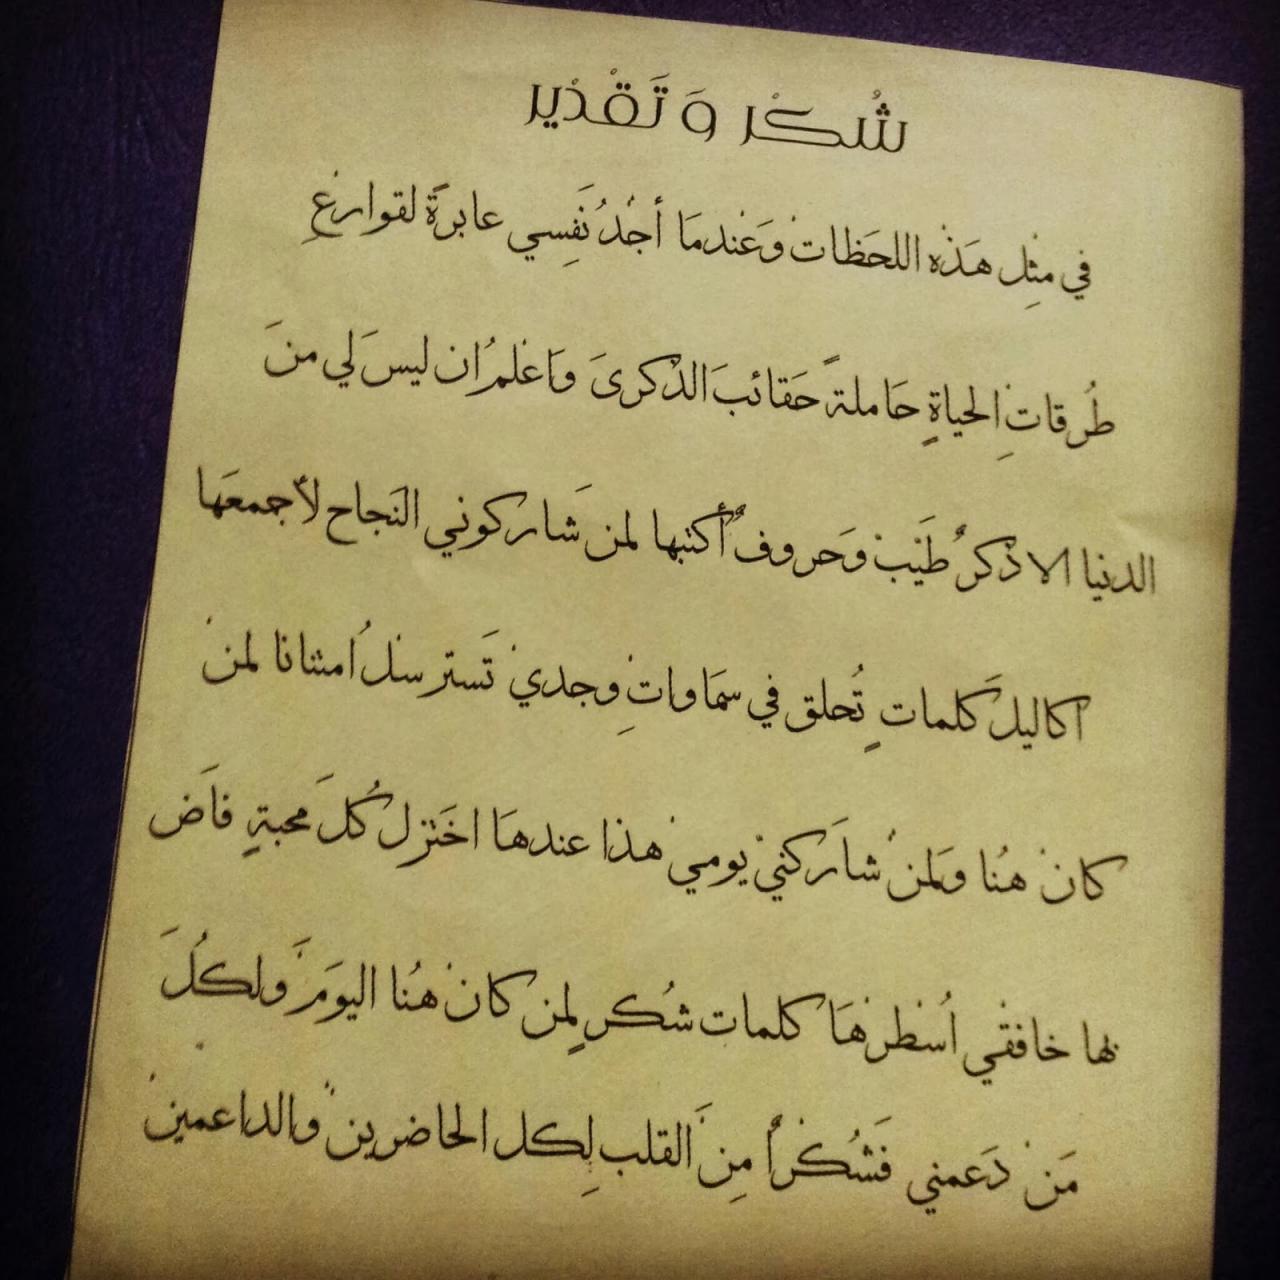 شُكْر وَ تَقْدْير
في مثِل هَذْه اللحَظاتْ وَعْندمَا أجْدُ نَفِسي عابرةً لقوارعِ
طُرقاتِ الحياةٍ حَاملةً حَقائبَ الذْكرىَ وَاعْلمُ ان ليسَ لي منَ
الدنيا الا ذْكرٌ طَيْبْ وَحروفٌ أكتبها لمن شَاركوني النَجاح لأجمعَها
اكاليلَ كَلماتٍ تُحلق في سمَاواتِ وجديْ تَسترسْلُ امتنانا لمنْ
كانْ هنُا وَلمنْ شاَركنيْ يوميْ هذا عندهَا اخَتزل كُلَ محبةٍ فاَض
بها خافقي اُسْطرهَا كلمات شُكرٍ لمن كانْ هنُا اليوَمَ ولكُلَ
مَنْ دَعمني فَشُكْراً مِنَ القلب لِكل الحاضرينْ والداعمينْ